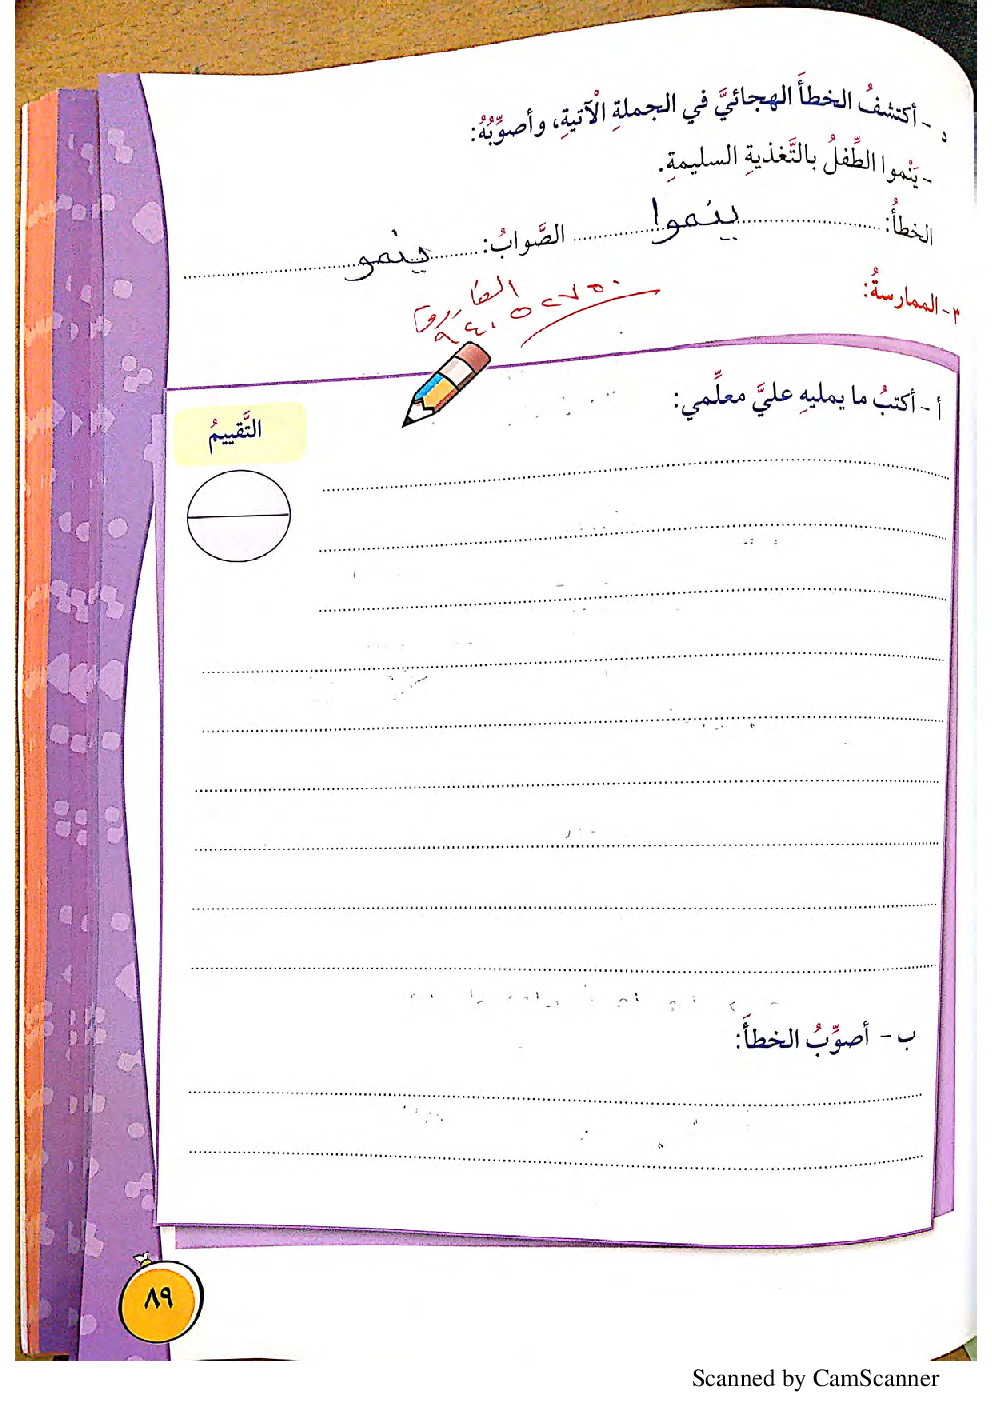 د - أكتشفُ الخطأَ الهجائيَّ في الجملةِ الْآتيةِ، وأصوِّبُهُ:
- يَنْموا الطِّفلُ بالتَّغذيةِ السليمةِ.
الخطأُ: ينموا الصَّوابُ: ينمو
٣- الممارسةُ:
أ - أكتبُ ما يمليهِ عليَّ معلِّمي:
التَّقييمُ
ب - أصوِّبُ الخطأَ:
٨٩
Scanned by CamScanner